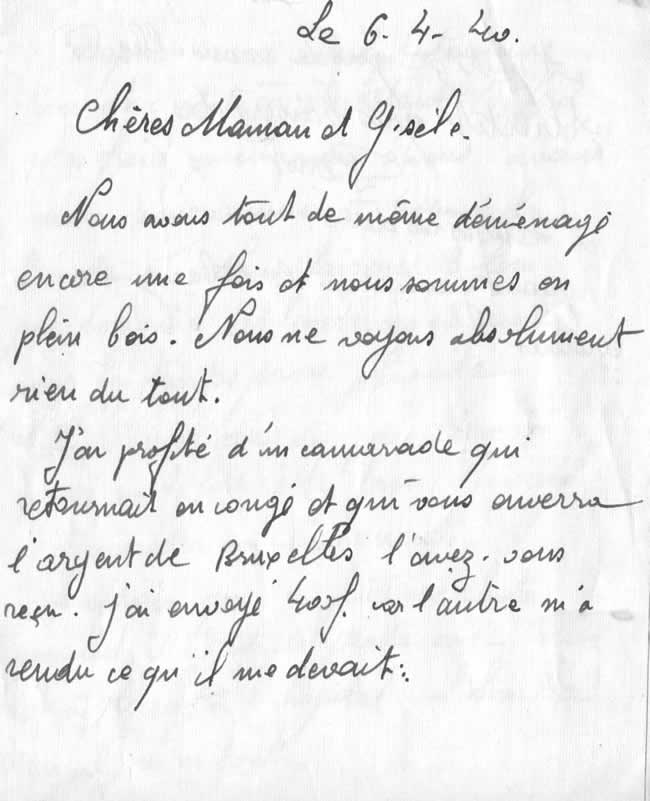 Le 6-4-40.
Chères Maman et Gisèle.
Nous avons tout de même déménagé
encore une fois et nous sommes en
plein bois. Nous ne voyons absolument
rien du tout.
J'ai profité d'un camarade qui
retournait en congé et qui vous enverra
l'argent de Bruxelles l'avez-vous
reçu. J'ai envoyé 400f. car l'autre m'a
rendu ce qu'il me devait.